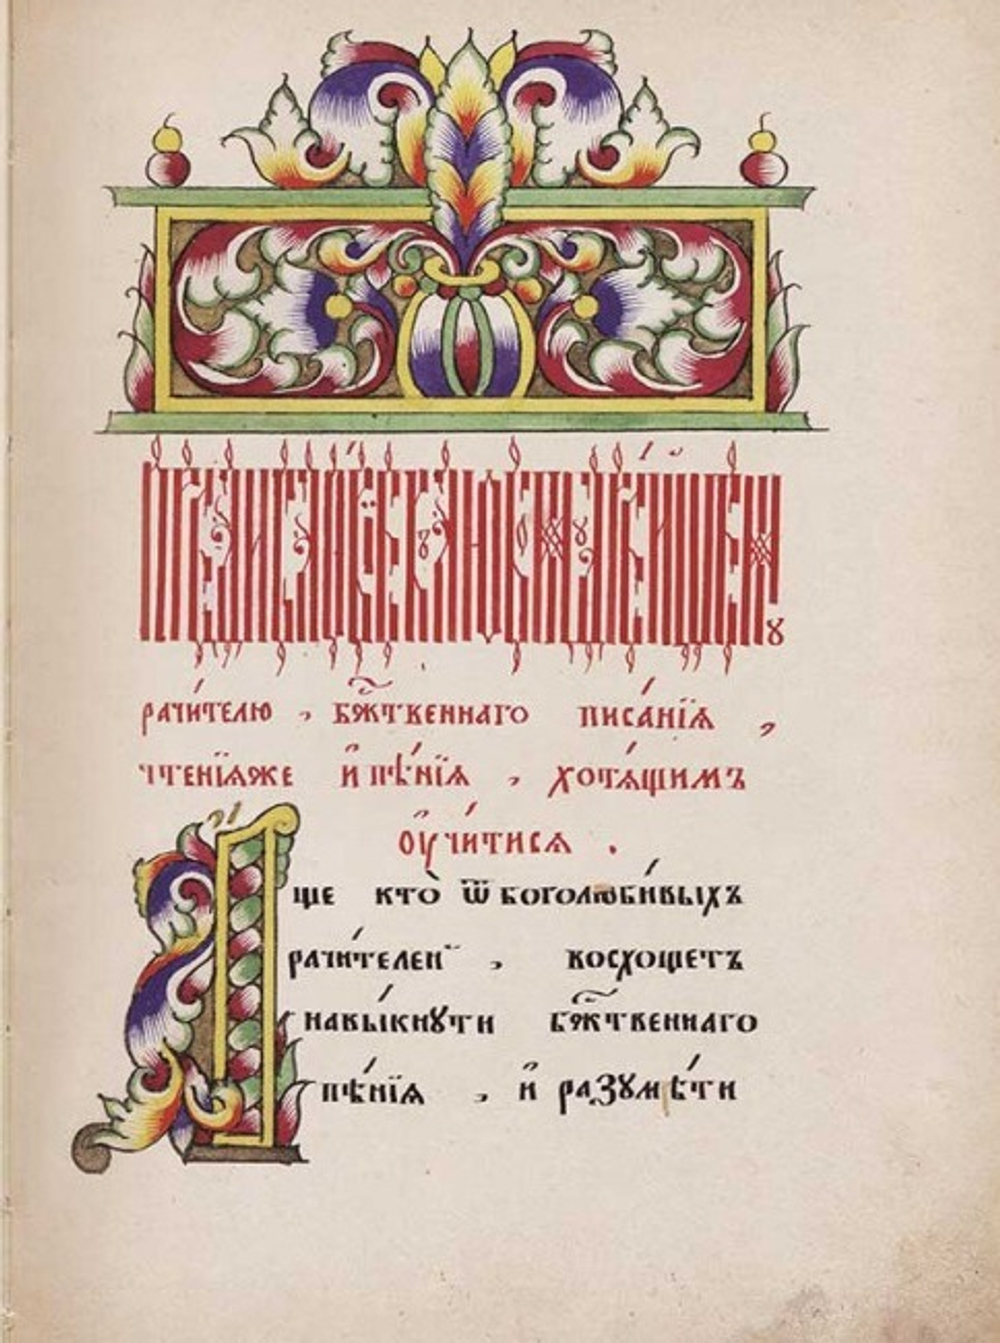 рачи́телю , бж҃твеннаго писа́нїѧ ,
чте́нїѧже и҆ пѣ́нїѧ , хотѧ́щимъ
оу҆чи́тисѧ .
А҆́ще кто̀ ѿ боголюби́выхъ
рачи́телей , восхощетъ
навы́кнꙋти бж҃твеннаго
пѣ́нїѧ , и҆ разꙋмѣ́ти